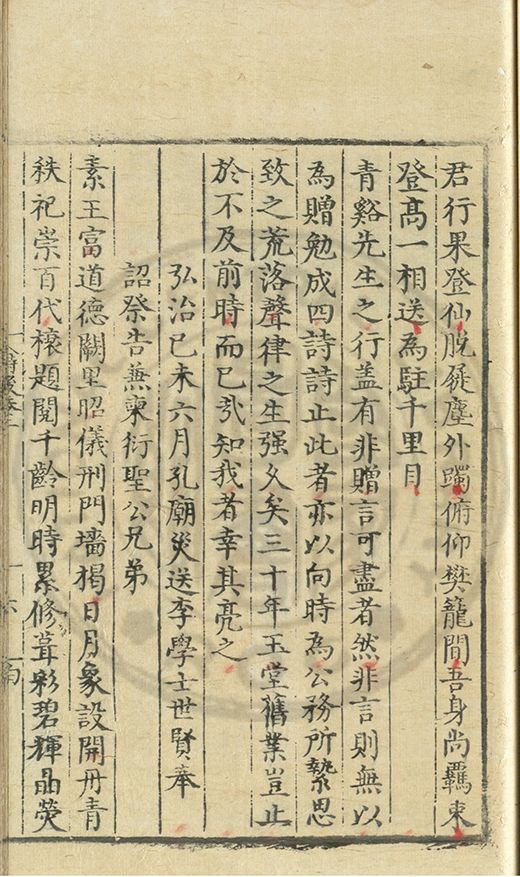 君行果登仙脫屣塵外躅俯仰樊籠間吾身尚羈束
登髙一相送為駐千里目
青谿先生之行盖有非贈言可盡者然非言則無以
為贈勉成四詩詩止此者亦以向時為公務所縶思
致之荒落聲律之生强乆矣三十年玉堂舊業豈止
於不及前時而已㢤知我者幸其亮之
弘治己未六月孔廟災送李學士世賢奉
詔祭告兼柬衍聖公兄弟
素王富道德闕里昭儀刑門墻揭日月象設開丹青
秩祀崇百代榱題閱千齡明時累修葺彩碧輝晶熒